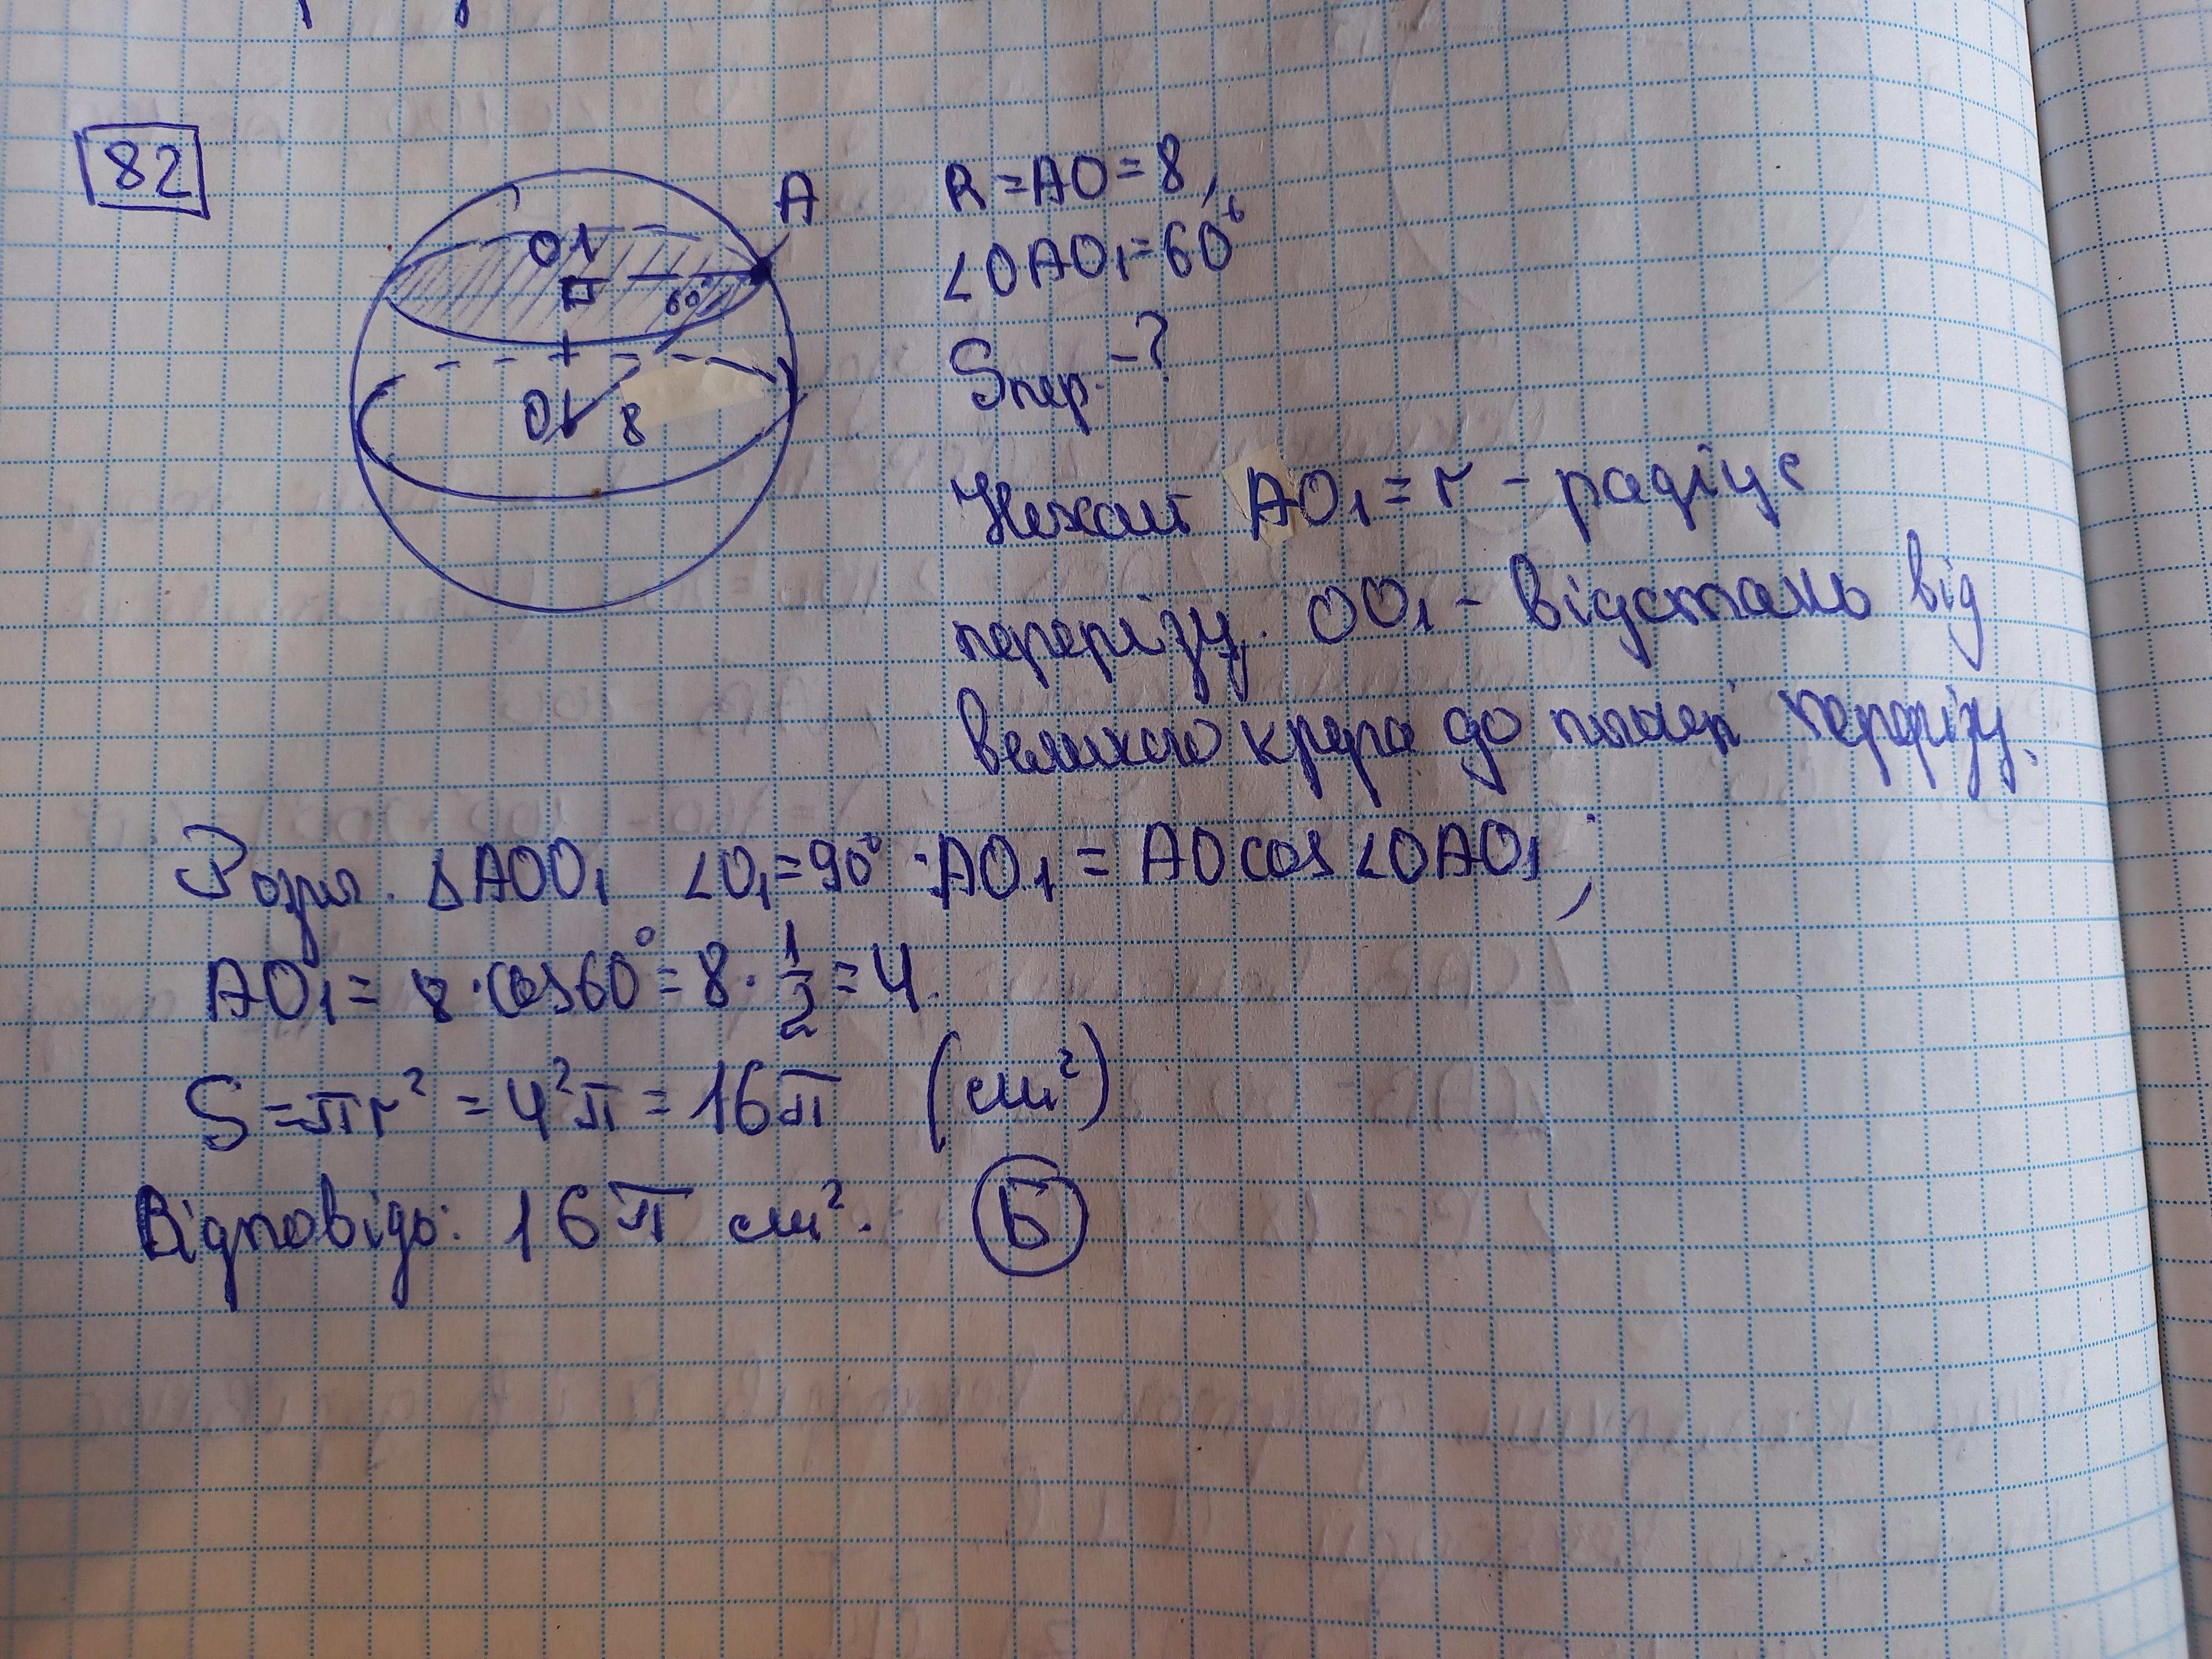 82
A
O1
60°
O
8
R = AO = 8,
∠OAO₁ = 60°
Sпер. - ?
Нехай AO₁ = r - радіус
перерізу, OO₁ - відстань від
великого круга до площі перерізу.
Розгл. ΔAOO₁ ∠O₁ = 90° : AO₁ = AO cos ∠OAO₁;
AO₁ = 8 · cos60° = 8 · 1/2 = 4.
S = πr² = 4²π = 16π (см²)
Відповідь: 16π см². Б